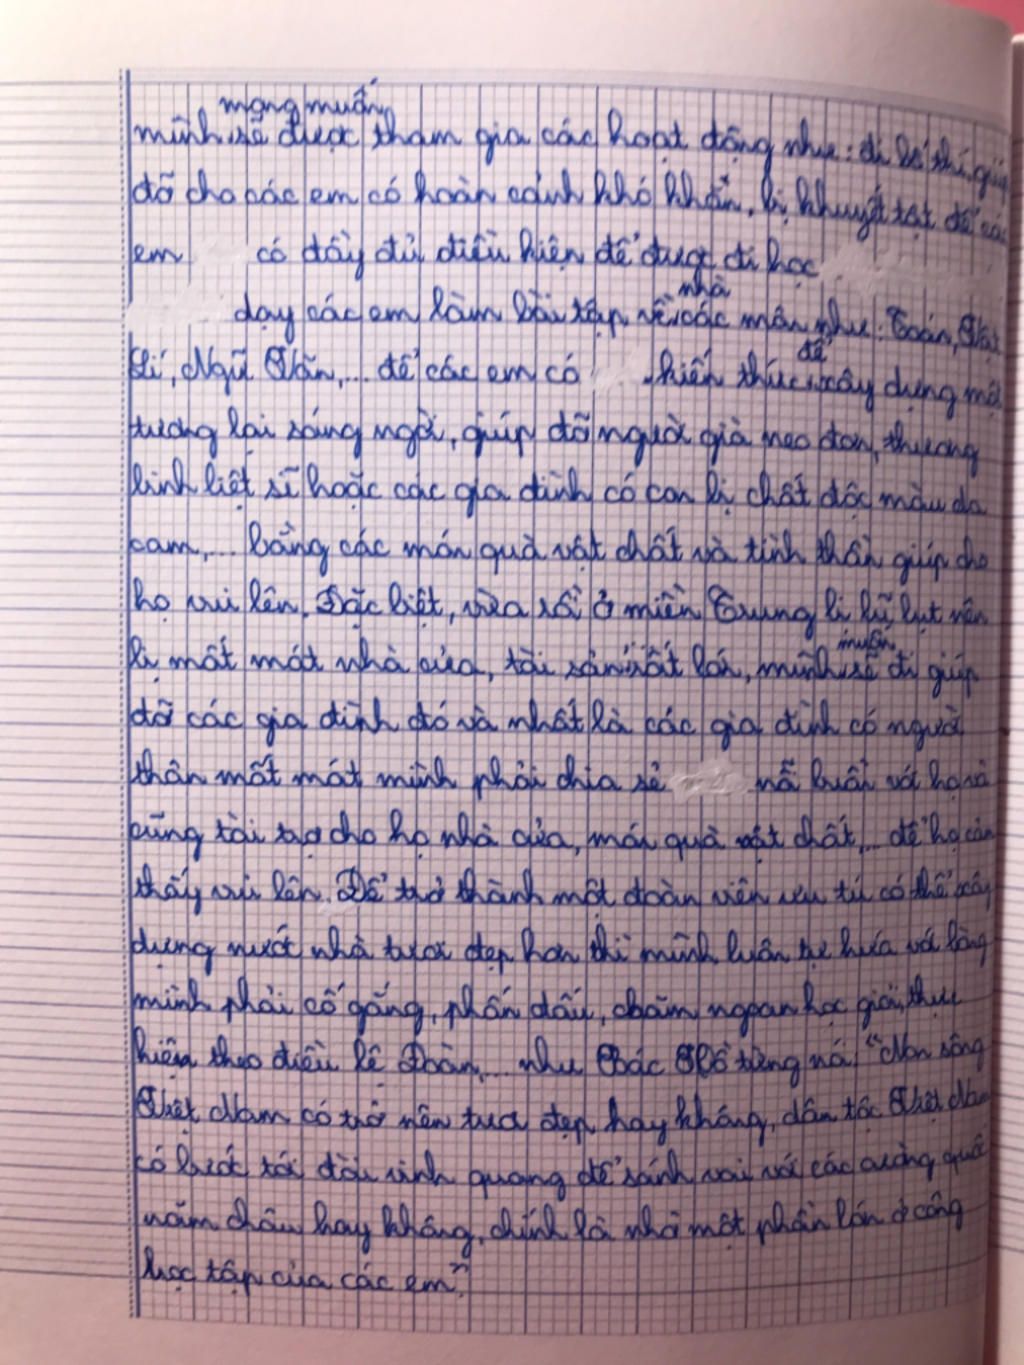 mong muốn
mình sẽ được tham gia các hoạt động như: đi bố thí, giúp
đỡ cho các em có hoàn cảnh khó khăn, bị khuyết tật để các
em có đầy đủ điều kiện để được đi học
nhà
dạy các em làm bài tập về các môn như: Toán, Vật
để
Lí, Ngữ Văn,... để các em có kiến thức xây dựng một
tương lai sáng ngời, giúp đỡ người già neo đơn, thương
binh liệt sĩ hoặc các gia đình có con bị chất độc màu da
cam,... bằng các món quà vật chất và tinh thần giúp cho
họ vui lên. Đặc biệt, vừa rồi ở miền Trung bị lũ lụt nên
muốn
bị mất mát nhà cửa, tài sản rất lớn, mình sẽ đi giúp
đỡ các gia đình đó và nhất là các gia đình có người
thân mất mát mình phải chia sẻ nỗi buồn với họ và
cũng tài trợ cho họ nhà cửa, món quà vật chất,... để họ cảm
thấy vui lên. Để trở thành một đoàn viên ưu tú có thể xây
dựng nước nhà tươi đẹp hơn thì mình luôn tự hứa với lòng
mình phải cố gắng, phấn đấu, chăm ngoan học giỏi, thực
hiện theo điều lệ Đoàn,... như Bác Hồ từng nói "Non sông
Việt Nam có trở nên tươi đẹp hay không, dân tộc Việt Nam
có bước tới đài vinh quang để sánh vai với các cường quốc
năm châu hay không, chính là nhờ một phần lớn ở công
học tập của các em".